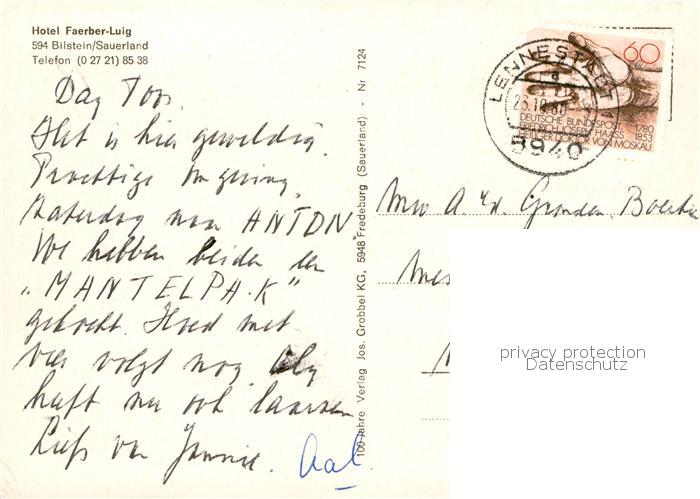 Hotel Faerber-Luig
594 Bilstein/Sauerland
Telefon (0 27 21) 85 38
Dag Toos.
Het is hier geweldig.
Prachtige omgeving.
Zaterdag naar ANTON.
We hebben beiden een
"MANTELPAK"
gekocht. Hoed met
veer volgt nog. Aly
heeft nu ook laarzen
Liefs van Jannie.
Aal
100 Jahre Verlag Jos. Grobbel KG, 5948 Fredeburg (Sauerland) - Nr 7124
LENNESTADT 1
5940
60
DEUTSCHE BUNDESPOST
FRIEDRICH JOSEPH HAASS
1780
1853
HEILIGER DOKTOR VON MOSKAU
Mw A. v/d
privacy protection
Datenschutz